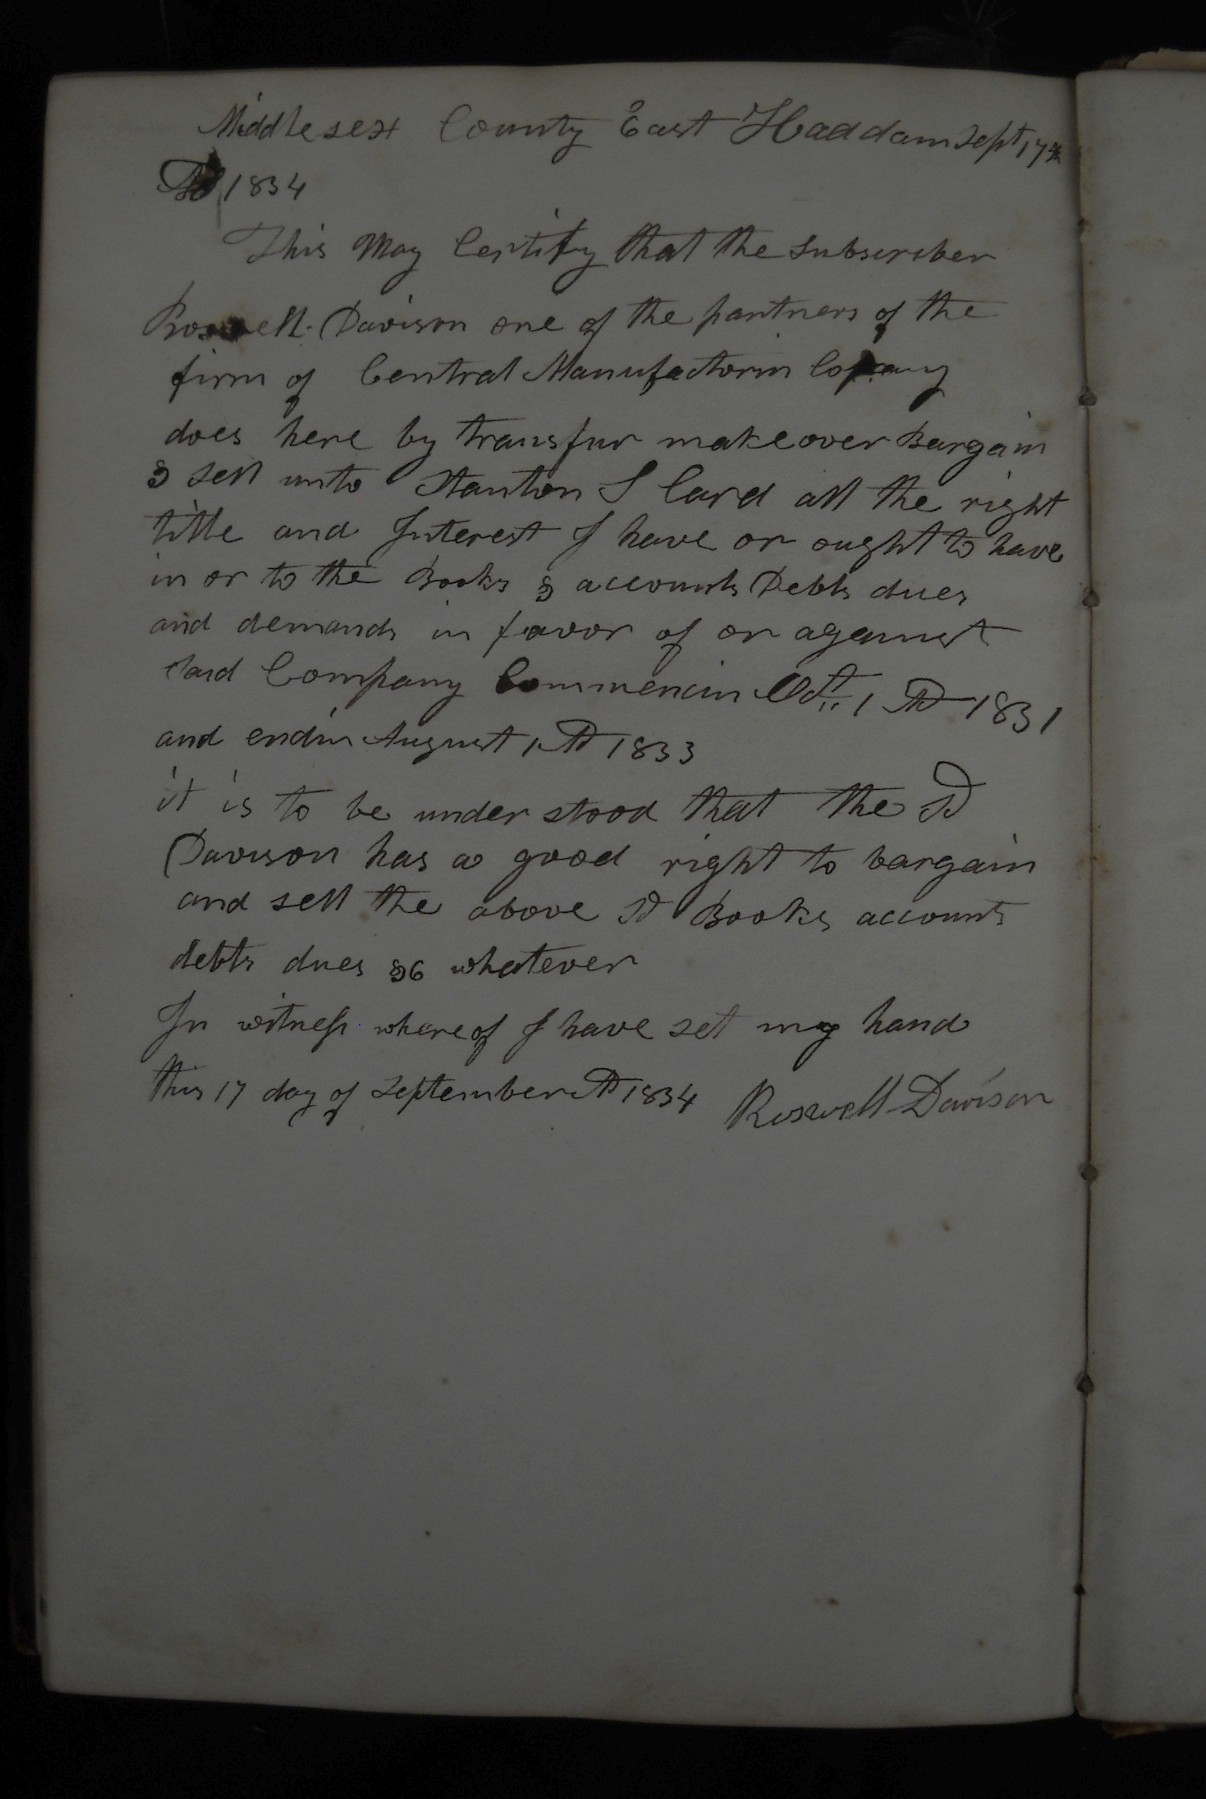 Middlesex County East Haddam Sept 17th
AD 1834
This May Certify that the Subscriber
Roswell Davison one of the partners of the
firm of Central Manufactorin Copany
does here by transfur make over Bargain
& sell unto Stanton S Card all the right
title and Interest I have or ought to have
in or to the Books & accounts Debts dues
and demands in favor of or against
said Company Commencin Oct 1 AD 1831
and endin August 1 AD 1833
it is to be under stood that the Sd
Davison has a good right to bargain
and sell the above Sd Books accounts
debts dues &c whatever
In witness where of I have set my hand
this 17 day of September AD 1834 Roswell Davison